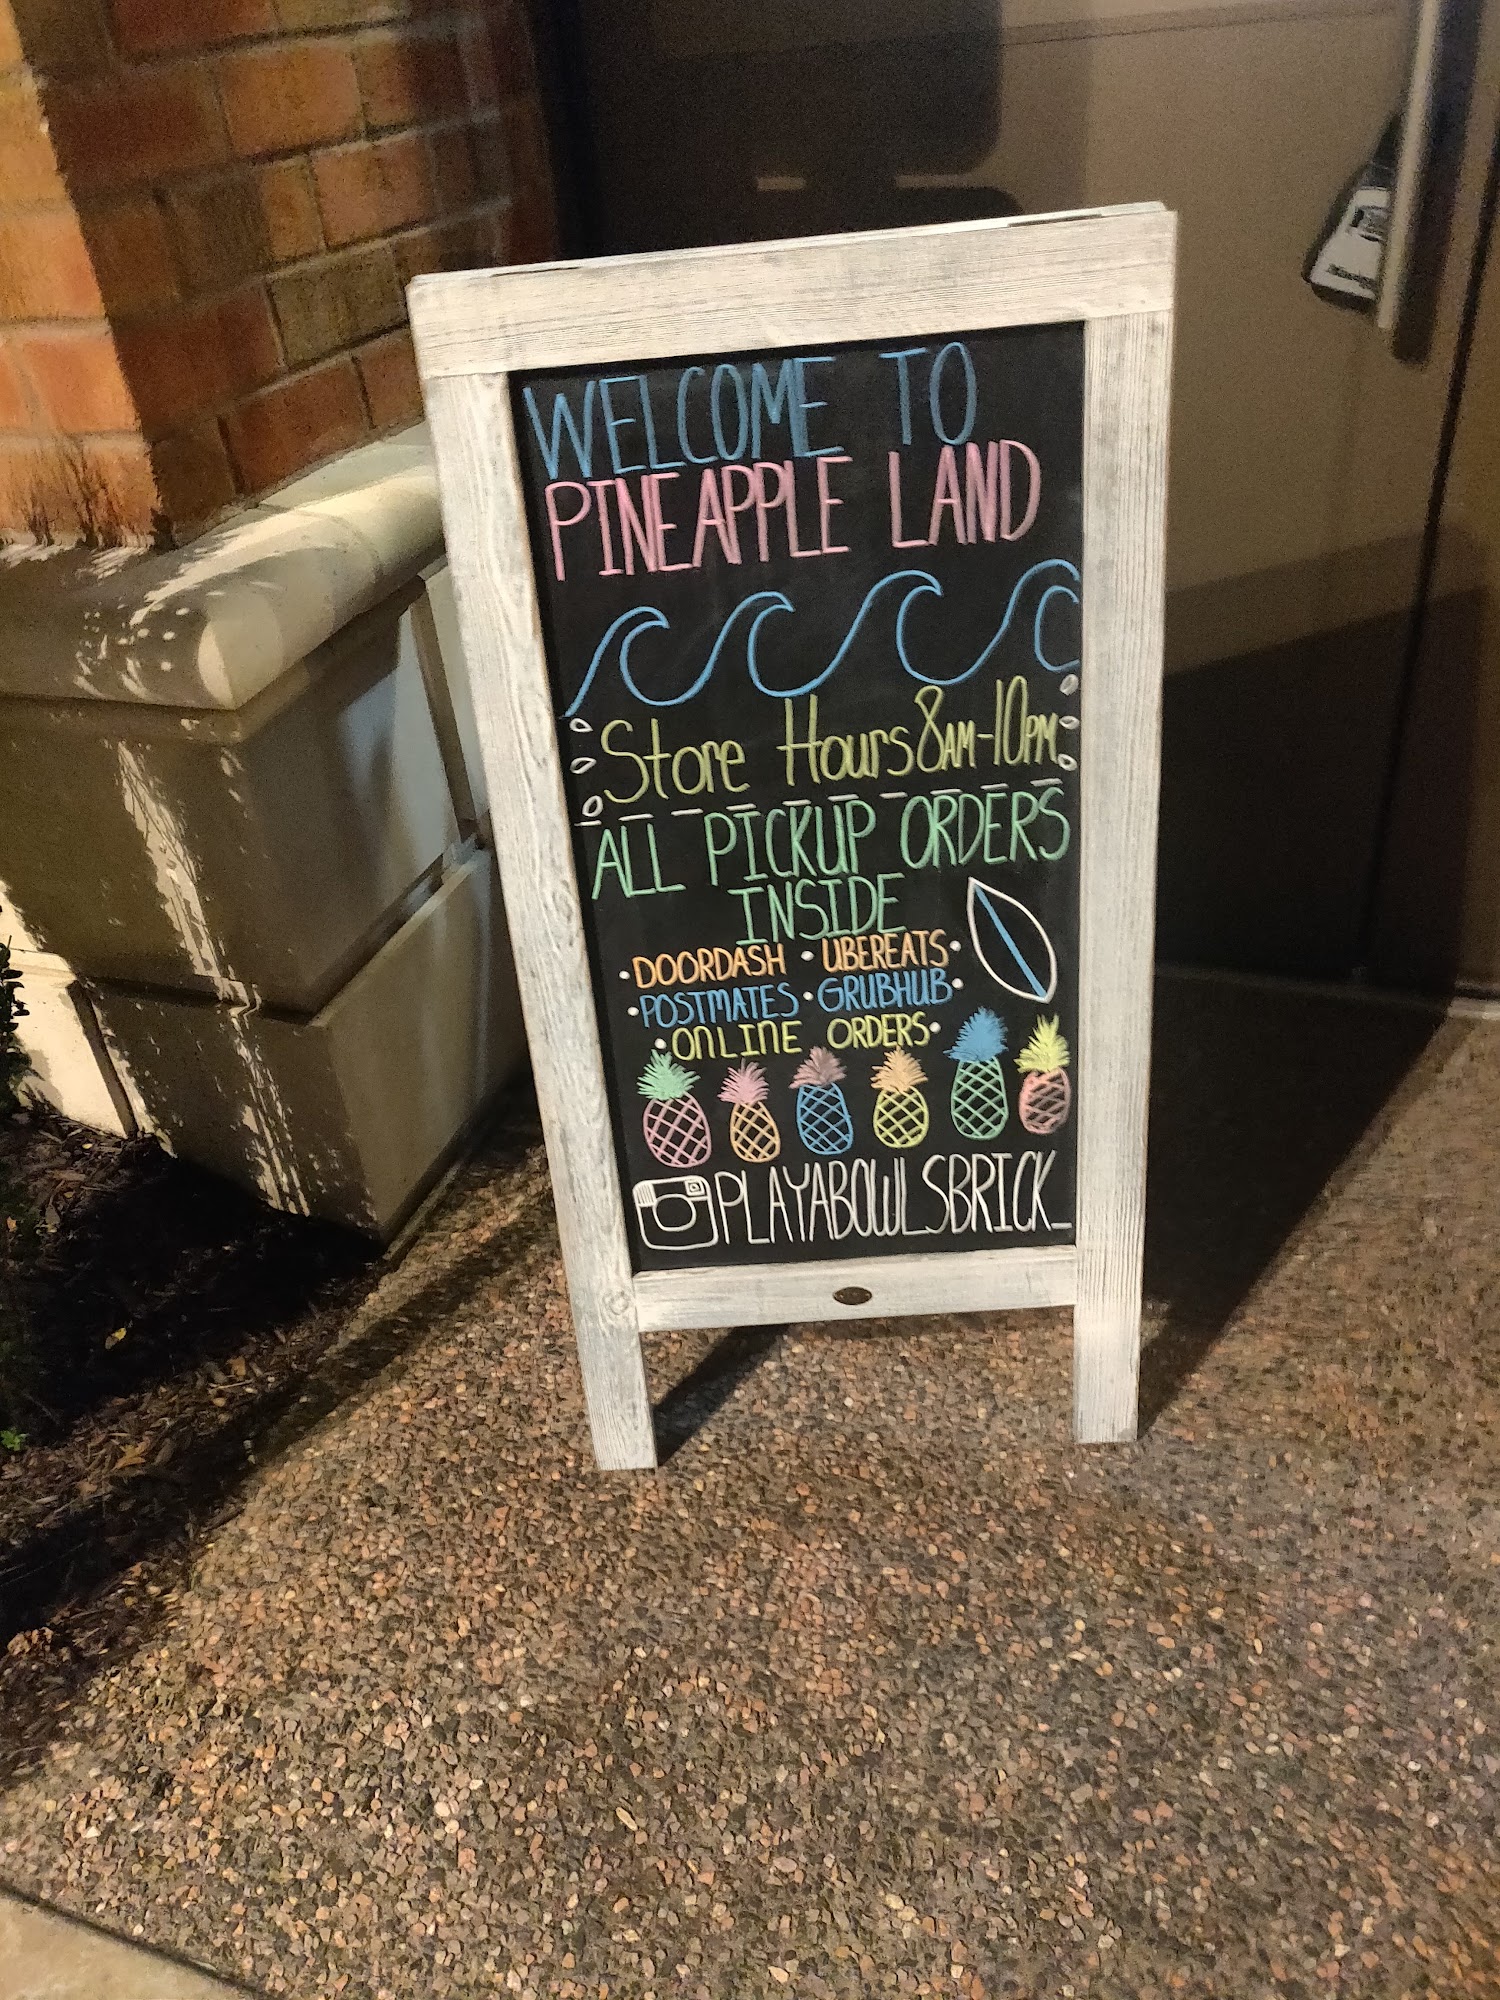 WELCOME TO
PINEAPPLE LAND
Store Hours 8AM-10PM
ALL PICKUP ORDERS
INSIDE
• DOORDASH • UBEREATS •
• POSTMATES • GRUBHUB •
• ONLINE ORDERS •
PLAYABOWLSBRICK_